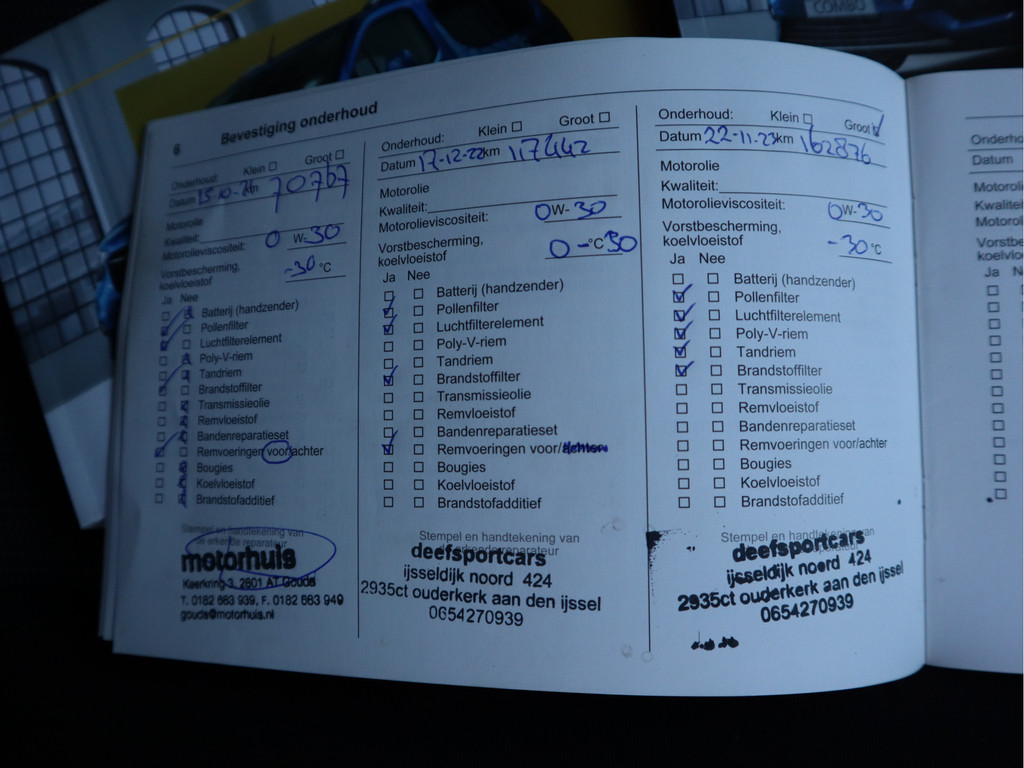 COMBO
6 Bevestiging onderhoud
Onderhoud: Klein Groot
Datum 15-10- km 70767
Motorolie
Kwaliteit:
Motorolieviscositeit: 0 W-30
Vorstbescherming,
koelvloeistof -30 °C
Ja Nee
Batterij (handzender)
Pollenfilter
Luchtfilterelement
Poly-V-riem
Tandriem
Brandstoffilter
Transmissieolie
Remvloeistof
Bandenreparatieset
Remvoeringen voor/achter
Bougies
Koelvloeistof
Brandstofadditief
Stempel en handtekening van
de erkende reparateur
motorhuis
Kaerkring 3, 2801 AT Gouda
T. 0182 683 939, F. 0182 683 949
gouda@motorhuis.nl
Onderhoud: Klein Groot
Datum 17-12-22 km 117442
Motorolie
Kwaliteit:
Motorolieviscositeit: 0W-30
Vorstbescherming,
koelvloeistof 0-°C 30
Ja Nee
Batterij (handzender)
Pollenfilter
Luchtfilterelement
Poly-V-riem
Tandriem
Brandstoffilter
Transmissieolie
Remvloeistof
Bandenreparatieset
Remvoeringen voor/
Bougies
Koelvloeistof
Brandstofadditief
Stempel en handtekening van
de erkende reparateur
deefsportcars
ijsseldijk noord 424
2935ct ouderkerk aan den ijssel
0654270939
Onderhoud: Klein Groot
Datum 22-11-23 km 162876
Motorolie
Kwaliteit:
Motorolieviscositeit: 0W-30
Vorstbescherming,
koelvloeistof -30 °C
Ja Nee
Batterij (handzender)
Pollenfilter
Luchtfilterelement
Poly-V-riem
Tandriem
Brandstoffilter
Transmissieolie
Remvloeistof
Bandenreparatieset
Remvoeringen voor/achter
Bougies
Koelvloeistof
Brandstofadditief
Stempel en handtekening van
deefsportcars
ijsseldijk noord 424
2935ct ouderkerk aan den ijssel
0654270939
Onderho
Datum
Motoroli
Kwalitei
Motorol
Vorstbe
koelvlo
Ja N